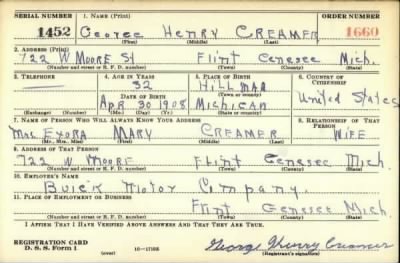 SERIAL NUMBER 1. NAME (Print) ORDER NUMBER
1452 George Henry Creamer 1660
(First) (Middle) (Last)
2. ADDRESS (Print)
722 W Moore St Flint Genesee Mich.
(Number and street or R. F. D. number) (Town) (County) (State)
3. TELEPHONE 4. AGE IN YEARS 5. PLACE OF BIRTH 6. COUNTRY OF CITIZENSHIP
— 32 Hillman
DATE OF BIRTH (Town or county) United States
Apr 30 1908 Michigan
(Exchange) (Number) (Mo.) (Day) (Yr.) (State or country)
7. NAME OF PERSON WHO WILL ALWAYS KNOW YOUR ADDRESS 8. RELATIONSHIP OF THAT PERSON
Mrs Mary Creamer Wife
(Mr., Mrs., Miss) (First) (Middle) (Last)
9. ADDRESS OF THAT PERSON
722 W Moore Flint Genesee Mich
(Number and street or R. F. D. number) (Town) (County) (State)
10. EMPLOYER'S NAME
Buick Motor Company
11. PLACE OF EMPLOYMENT OR BUSINESS
Flint Genesee Mich
(Number and street or R. F. D. number) (Town) (County) (State)
I AFFIRM THAT I HAVE VERIFIED ABOVE ANSWERS AND THAT THEY ARE TRUE.
REGISTRATION CARD
D. S. S. Form 1 (over) George Henry Creamer
(Registrant's signature)